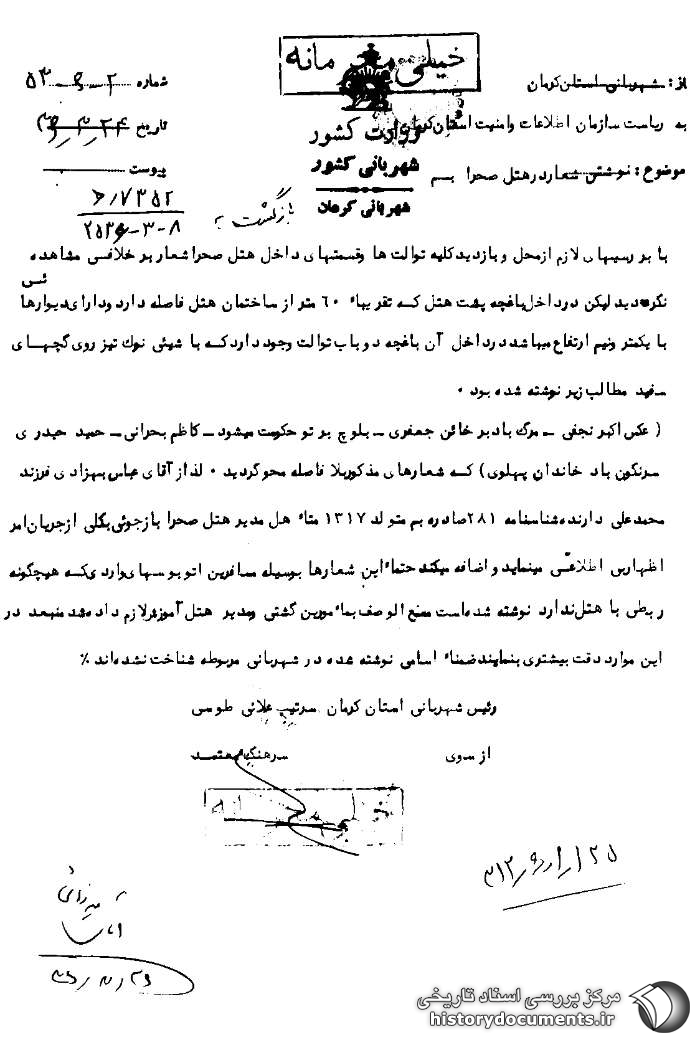 خیلی محرمانه
از: شهربانی استان کرمان
شماره ۲-۵-۵۳
به ریاست سازمان اطلاعات وامنیت استان کرمان
وزارت کشور
تاریخ
شهربانی کشور
موضوع: نوشتن شعار در هتل صحرا بسم
پیوست
شهربانی کرمان
بازگشت به ۵/۷۳۵۲
۲۵۳۶-۳-۸
با بررسیهای لازم از محل و بازدید کلیه توالت ها وقسمتهای داخل هتل صحرا شعار بر خلافی مشاهده
نگردید لیکن در داخل باغچه پشت هتل که تقریباً ۶۰ متر از ساختمان هتل فاصله دارد ودارای دیوارهائی
با یکمتر ونیم ارتفاع میباشد در داخل آن باغچه دو باب توالت وجود دارد که با شیئی نوک تیز روی گچهای
سفید مطالب زیر نوشته شده بود ۰
( عکس اکبر نجفی ــ مرگ باد بر خائن جعفری ــ بلوچ بر تو حکومت میشود ــ کاظم بحرانی ــ حمید حیدری
سرنگون باد خاندان پهلوی) که شعارهای مذکور بلا فاصله محو گردید ۰ لذا از آقای عباس بهزادی فرزند
محمدعلی دارنده شناسنامه ۲۸۱ صادره بم متولد ۱۳۱۷ متأهل مدیر هتل صحرا بازجوئی بکلی از جریان امر
اظهار بی اطلاعی مینماید و اضافه میکند حتماً این شعارها بوسیله مسافرین اتوبوسهای واردی که هیچگونه
ربطی با هتل ندارد نوشته شده است مع الوصف بمأمورین گشتی ومدیر هتل آموزش لازم داده شد منبعد در
این موارد دقت بیشتری بنمایند ضمناً اسامی نوشته شده در شهربانی مربوطه شناخت نشده اند ٪
رئیس شهربانی استان کرمان سرتیپ علائی طوسی
از سوی سرهنگ معتمد
خیلی محرمانه
مرکز بررسی اسناد تاریخی
historydocuments.ir